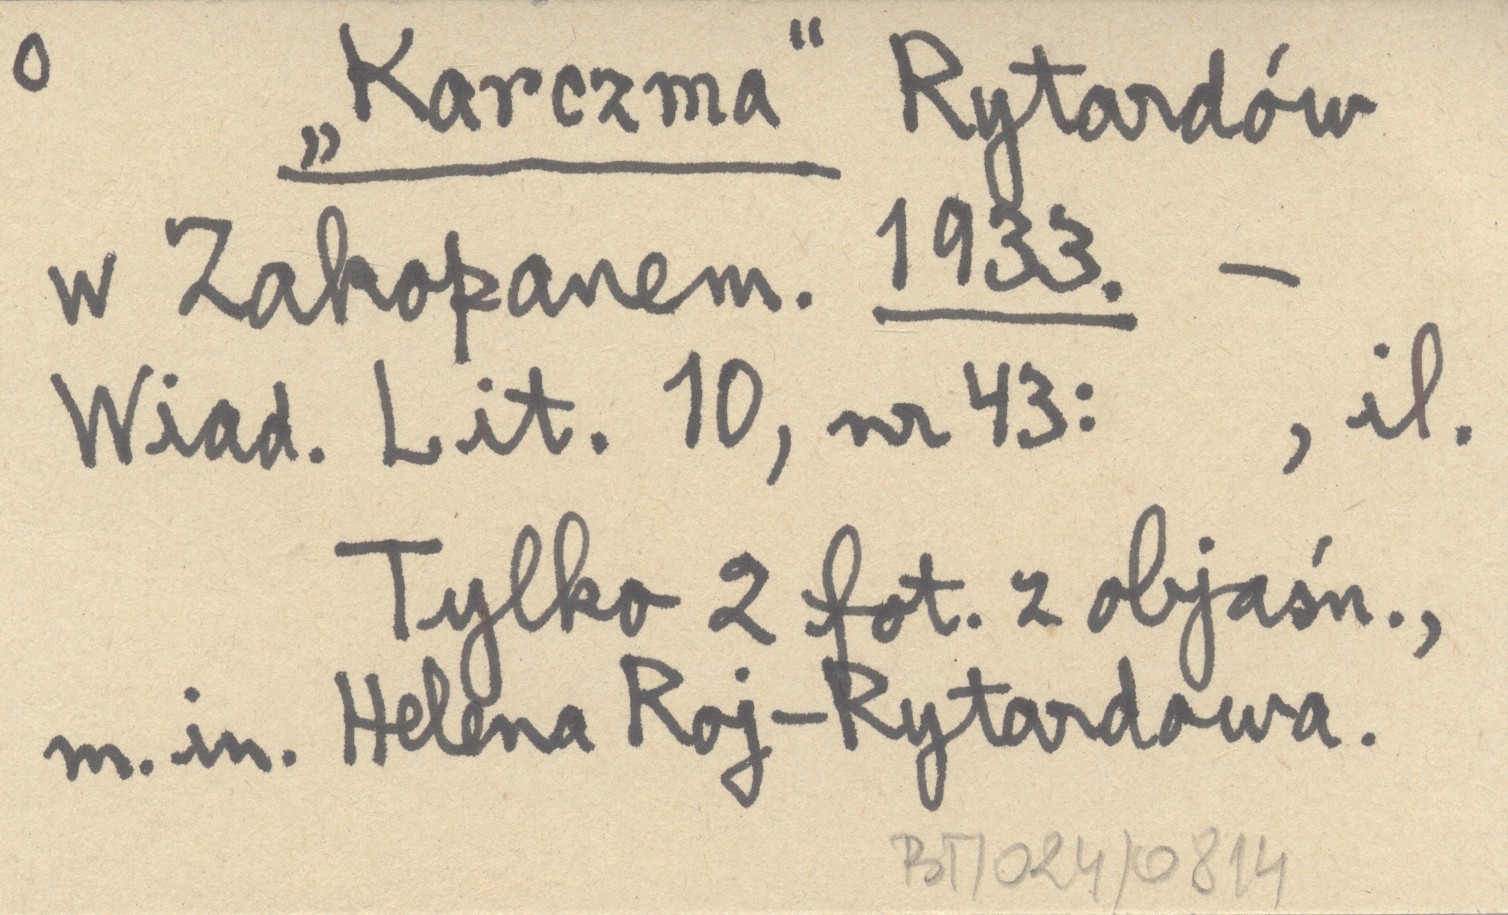 o „Karczma“ Rytardów
w Zakopanem. 1933. –
Wiad. Lit. 10, nr 43: , il.
Tylko 2 fot. z objaśn.,
m. in. Helena Roj-Rytardowa.
BT/024/0814